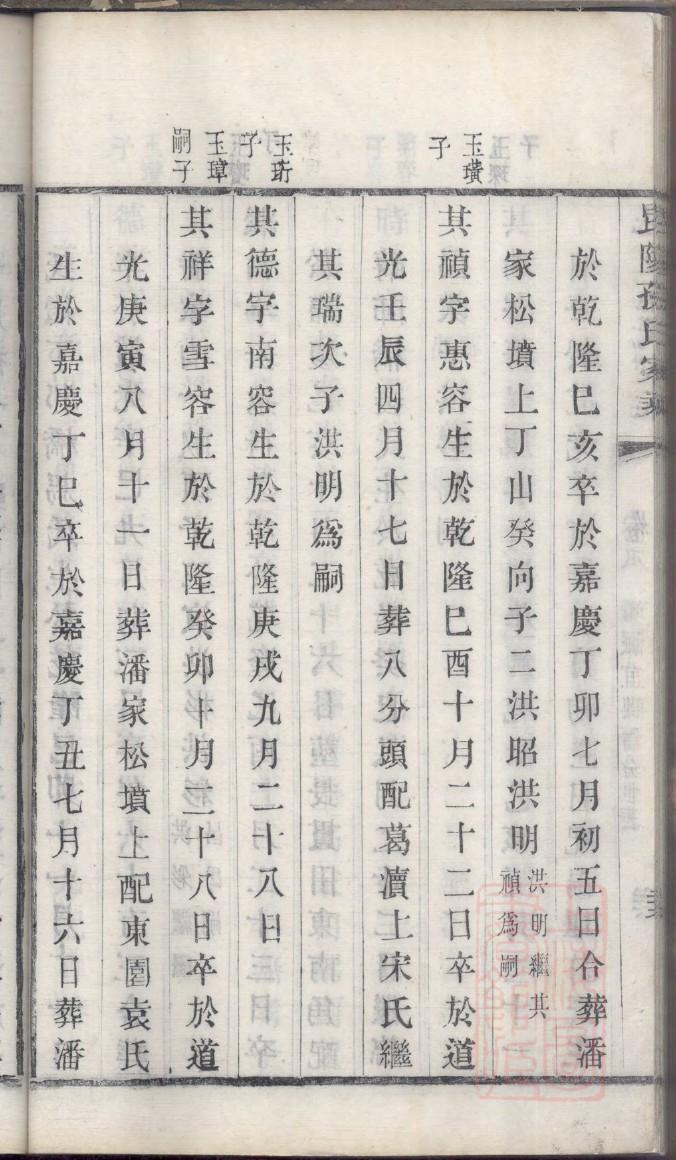 毘陵孫氏家乘
於乾隆己亥卒於嘉慶丁卯七月初五日合葬潘
家松墳上丁山癸向子二洪昭洪明洪明繼其禎爲嗣
玉璜子
其禎字惠容生於乾隆己酉十月二十二日卒於道
光壬辰四月十七日葬八分頭配葛瀆上宋氏繼
其瑞次子洪明爲嗣
玉珩子
其德字南容生於乾隆庚戌九月二十八日
玉璋嗣子
其祥字雪容生於乾隆癸卯十月二十八日卒於道
光庚寅八月十一日葬潘家松墳上配東園袁氏
生於嘉慶丁巳卒於嘉慶丁丑七月十六日葬潘